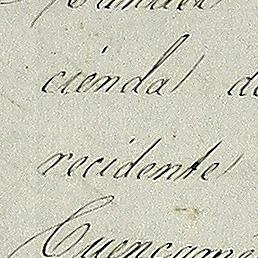 cienda de
recidente
Cuencamé